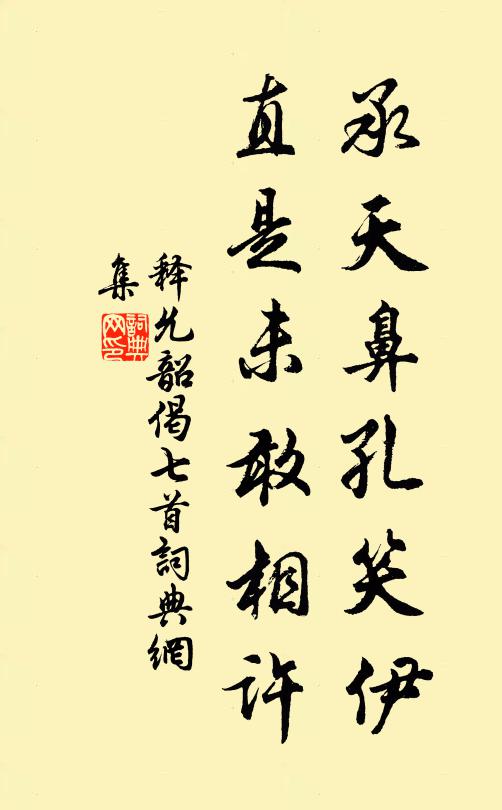 承天鼻孔笑伊
直是未敢相许
释允韶偈七首詞典網
集
詞典
网印